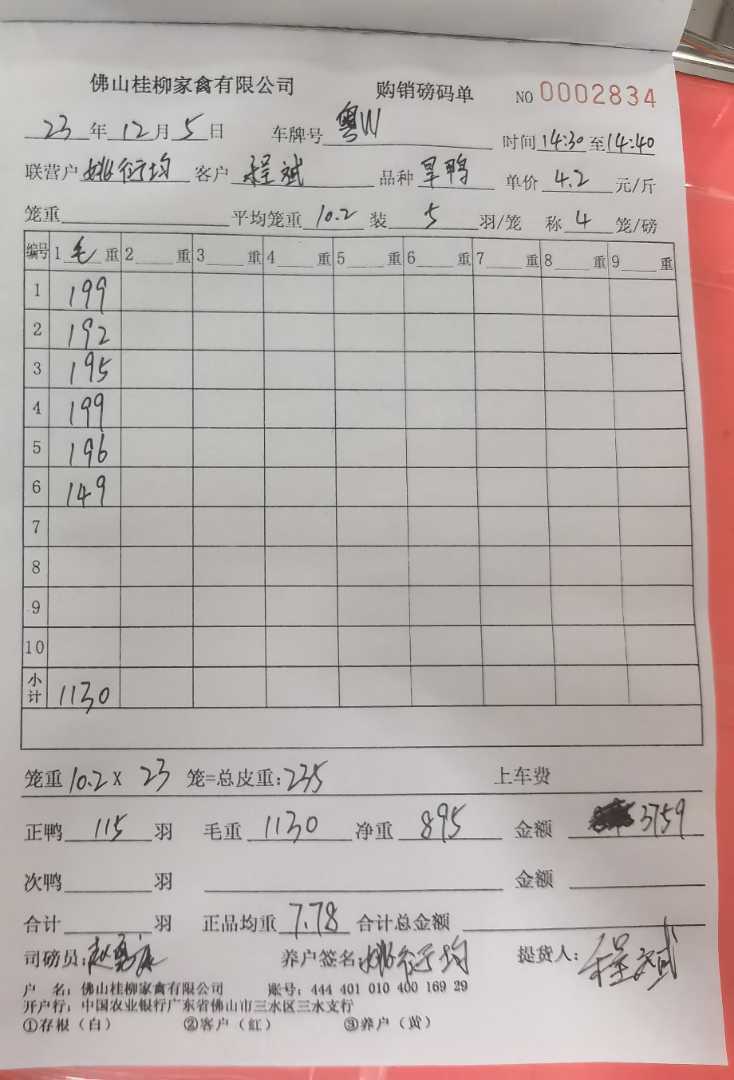 佛山桂柳家禽有限公司 购销磅码单 NO 0002834
23年12月5日 车牌号 粤W 时间14:30至14:40
联营户 姚衍均 客户 程斌 品种 旱鸭 单价 4.2 元/斤
笼重 平均笼重 10.2 装 5 羽/笼 称 4 笼/磅
编号 1 毛 重 2 重 3 重 4 重 5 重 6 重 7 重 8 重 9 重
1 199
2 192
3 195
4 199
5 196
6 149
7
8
9
10
小计 1130
笼重 10.2 X 23 笼=总皮重:235 上车费
正鸭 115 羽 毛重 1130 净重 895 金额 3759
次鸭 羽 金额
合计 羽 正品均重 7.78 合计总金额
司磅员: 养户签名 姚衍均 提货人: 程斌
户 名: 佛山桂柳家禽有限公司 账号: 444 401 010 400 169 29
开户行: 中国农业银行广东省佛山市三水区三水支行
①存根(白) ②客户(红) ③养户(黄)